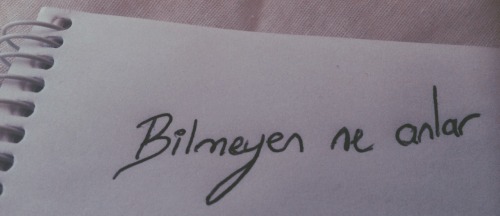 Bilmeyen ne anlar